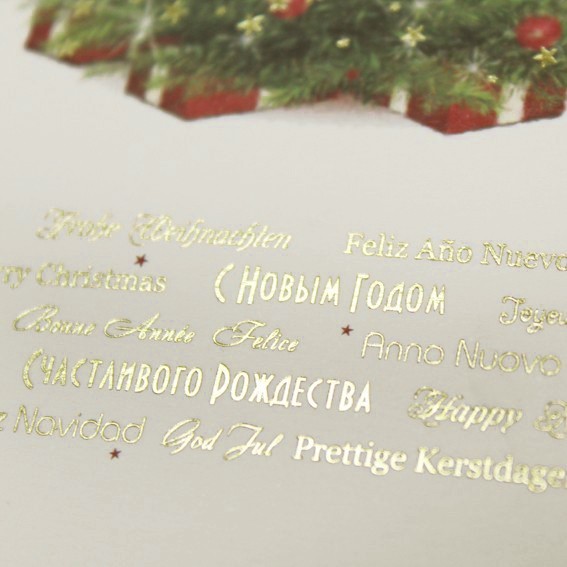 Frohe Weihnachten Feliz Año Nuevo
rry Christmas С Новым Годом Joyeu
Bonne Année Felice Anno Nuovo
Счастливого Рождества Happy
z Navidad God Jul Prettige Kerstdage